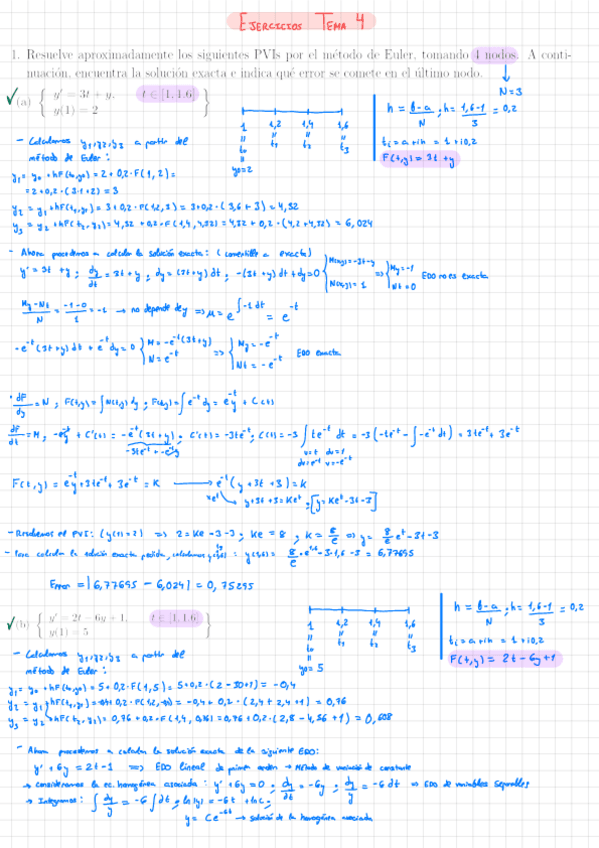 EJERCICIOS TEMA 4
1. Resuelve aproximadamente los siguientes PVIs por el método de Euler, tomando 4 nodos. A conti-
nuación, encuentra la solución exacta e indica qué error se comete en el último nodo.
N=3
(a) { y' = 3t + y, t ∈ [1, 1.6]
y(1) = 2 }
1 1,2 1,4 1,6
t₀ t₁ t₂ t₃
y₀=2
h = b-a/N ; h = 1,6-1/3 = 0,2
tᵢ = a+ih = 1+i0,2
F(t,y) = 3t+y
- Calculamos y₁, y₂, y₃ a partir del
método de Euler:
y₁ = y₀ + hF(t₀,y₀) = 2 + 0,2·F(1,2) =
= 2+0,2·(3·1+2) = 3
y₂ = y₁ + hF(t₁,y₁) = 3 + 0,2·F(1,2,3) = 3+0,2·(3,6+3) = 4,32
y₃ = y₂ + hF(t₂,y₂) = 4,32 + 0,2·F(1,4,4,32) = 4,32 + 0,2·(4,2+4,32) = 6,024
- Ahora procedemos a calcular la solución exacta: (convertible a exacta)
y' = 3t + y ; dy/dt = 3t+y ; dy = (3t+y)dt ; -(3t+y)dt + dy = 0 { M(t,y) = -3t-y N(t,y) = 1 ⇒ { My = -1 Nt = 0 EDO no es exacta
My-Nt/N = -1-0/1 = -1 → no depende de y ⇒ μ = e^∫-1dt = e^-t
-e^-t(3t+y)dt + e^-t dy = 0 { M = -e^-t(3t+y) N = e^-t ⇒ { My = -e^-t Nt = -e^-t EDO exacta
· dF/dy = N ; F(t,y) = ∫N(t,y)dy ; F(t,y) = ∫e^-t dy = e^-t y + C(t)
dF/dt = M ; -e^-t y + C'(t) = -e^-t(3t+y) ; C'(t) = -3te^-t ; C(t) = -3∫te^-t dt = -3(-te^-t - ∫-e^-t dt) = 3te^-t + 3e^-t
-3te^-t - e^-t y
u=t du=1
dv=e^-t v=-e^-t
F(t,y) = e^-t y + 3te^-t + 3e^-t = K → e^-t(y+3t+3) = K
y+3t+3 = Ke^t ; [y = Ke^t-3t-3]
- Resolvemos el PVI: (y(1)=2) ⇒ 2 = Ke-3-3 ; Ke = 8 ; K = 8/e ⇒ y = 8/e e^t-3t-3
- Para calcular la solución exacta pedida, calculamos y(1,6): y(1,6) = 8/e·e^1,6-3·1,6-3 = 6,77695
Error = |6,77695 - 6,024| = 0,75295
(b) { y' = 2t - 6y + 1, t ∈ [1, 1.6]
y(1) = 5 }
1 1,2 1,4 1,6
t₀ t₁ t₂ t₃
y₀ = 5
h = b-a/N ; h = 1,6-1/3 = 0,2
tᵢ = a+ih = 1+i0,2
F(t,y) = 2t-6y+1
- Calculamos y₁, y₂, y₃ a partir del
método de Euler:
y₁ = y₀ + hF(t₀,y₀) = 5 + 0,2·F(1,5) = 5+0,2·(2-30+1) = -0,4
y₂ = y₁ + hF(t₁,y₁) = -0,4 + 0,2·(2,4+2,4+1) = 0,76
y₃ = y₂ + hF(t₂,y₂) = 0,76 + 0,2·F(1,4, 0,76) = 0,76+0,2·(2,8-4,56+1) = 0,608
- Ahora procedemos a calcular la solución exacta de la siguiente EDO:
y' + 6y = 2t-1 ⇒ EDO lineal de primer orden → Método de variación de constante
→ Consideramos la ec. homogénea asociada: y' + 6y = 0 ; dy/dt = -6y ; dy/y = -6dt ⇒ EDO de variables separables
→ Integramos: ∫dy/y = -6∫dt ; ln|y| = -6t + lnC ;
y = Ce^-6t → solución de la homogénea asociada